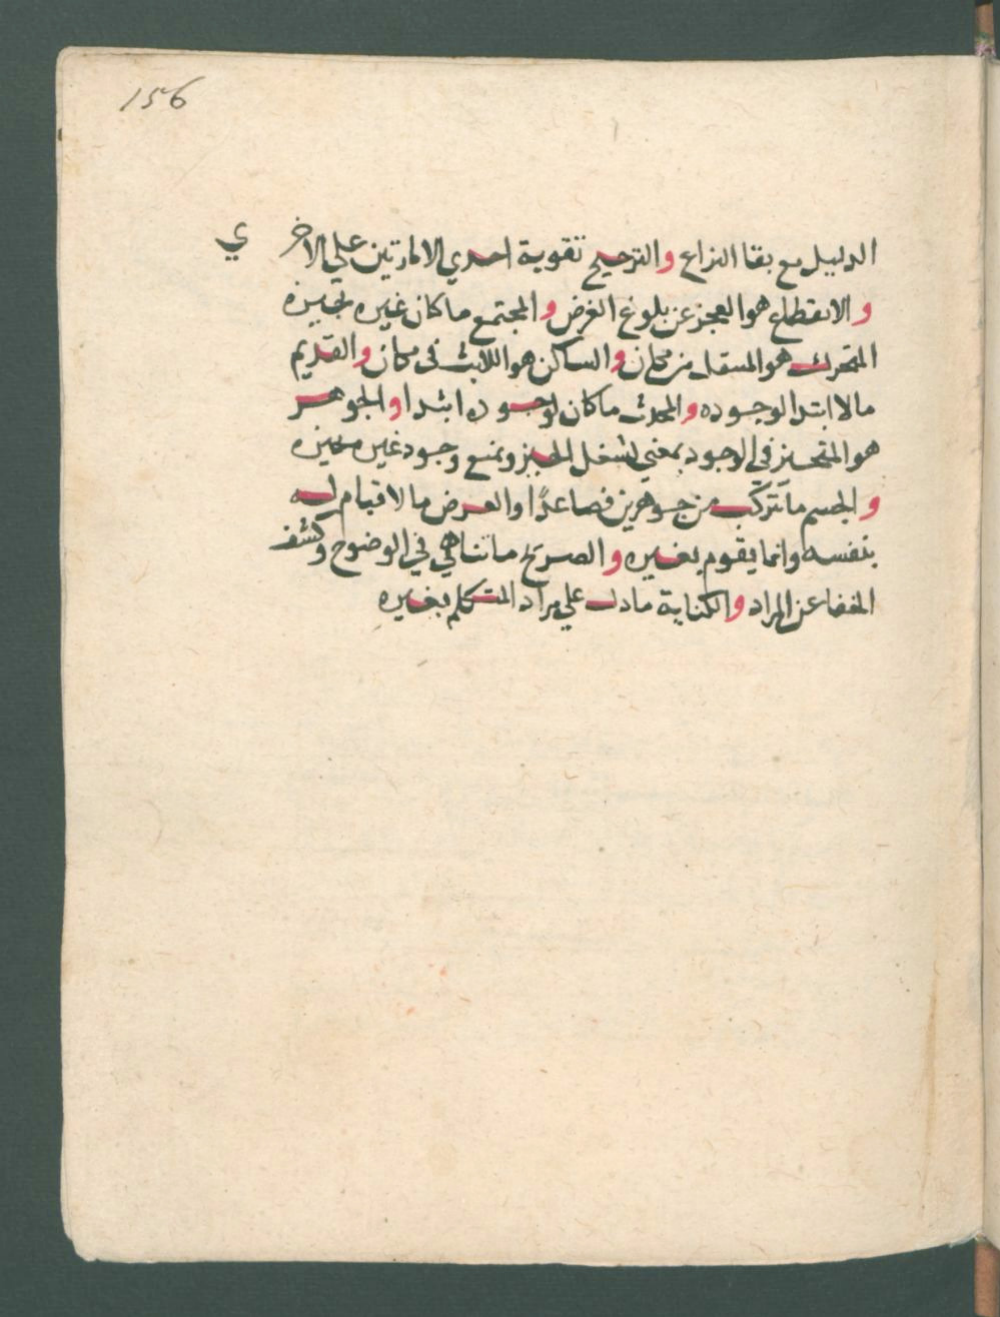 156
الدليل مع بقا النزاع والترجيح تقوية احدي الامارتين علي الاخري
والانقطاع هو العجز عن بلوغ الغرض والمجتمع ما كان غيره بحيزه
المتحرك هو المنتقل من مكان والساكن هو اللابث في مكان والقديم
مالا ابتدا لوجوده والمحدث ما كان لوجوده ابتدا والجوهر
هو المتحيز في الوجود بمعني يشغل الحيز ويمنع وجود غيره بحيزه
والجسم ما يتركب من جوهرين فصاعدًا والعرض مالا قيام له
بنفسه وانما يقوم بغيره والصريح ما تناهي في الوضوح وكشف
الخفا عن المراد والكناية ما دل علي مراد المتكلم بغيره